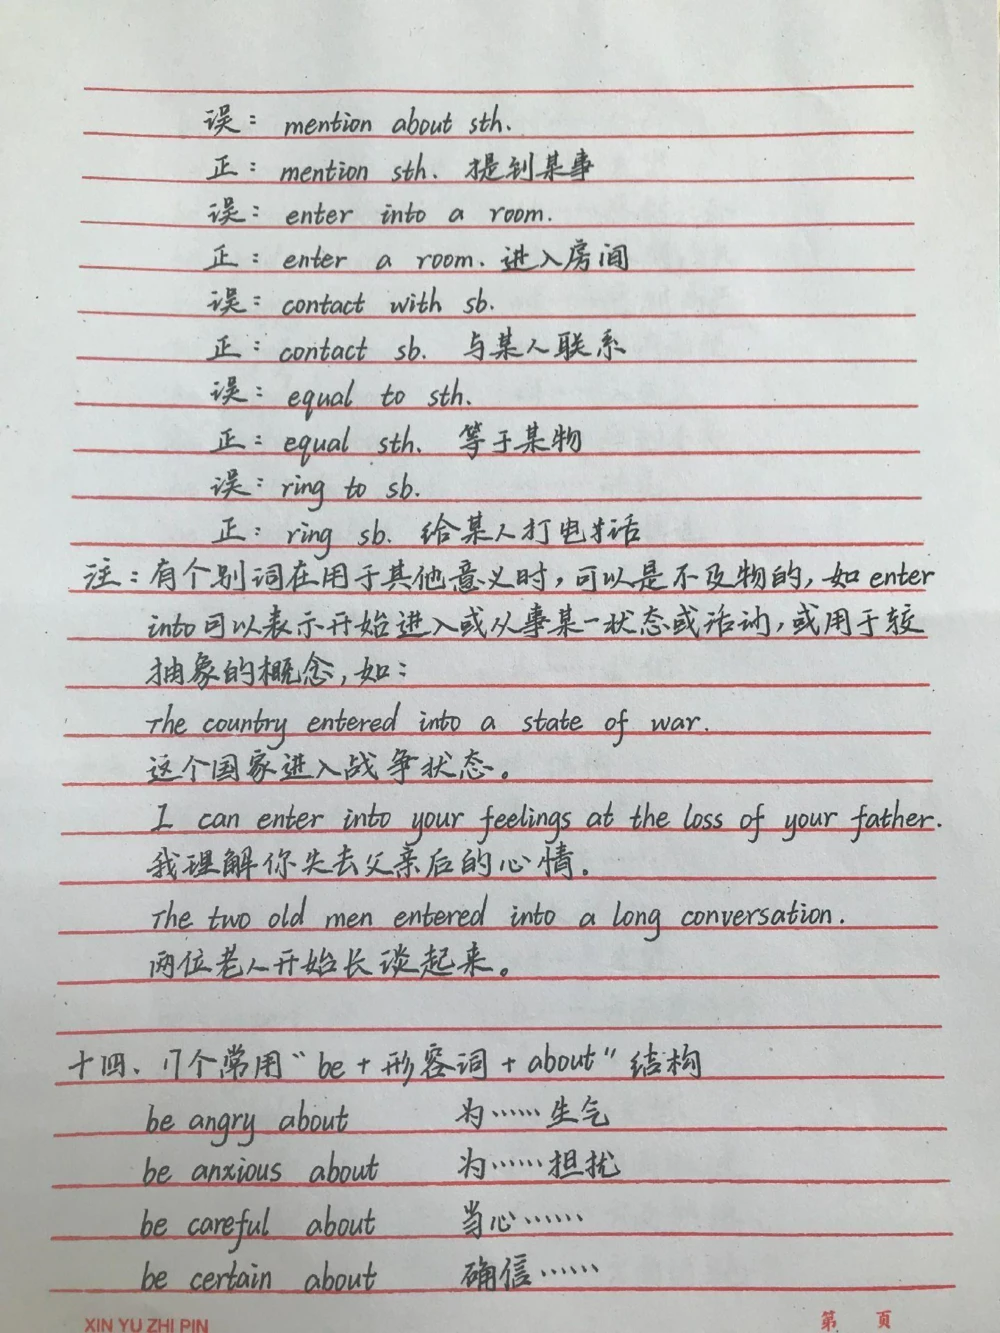 误： mention about sth.
正： mention sth. 提到某事
误： enter into a room.
正： enter a room. 进入房间
误： contact with sb.
正： contact sb. 与某人联系
误： equal to sth.
正： equal sth. 等于某物
误： ring to sb.
正： ring sb. 给某人打电话
注：有个别词在用于其他意义时，可以是不及物的，如 enter
into可以表示开始进入或从事某一状态或活动，或用于较
抽象的概念，如：
The country entered into a state of war.
这个国家进入战争状态。
I can enter into your feelings at the loss of your father.
我理解你失去父亲后的心情。
The two old men entered into a long conversation.
两位老人开始长谈起来。
十四、几个常用“be + 形容词 + about”结构
be angry about 为……生气
be anxious about 为……担扰
be careful about 当心……
be certain about 确信……
XIN YU ZHI PIN 第 页